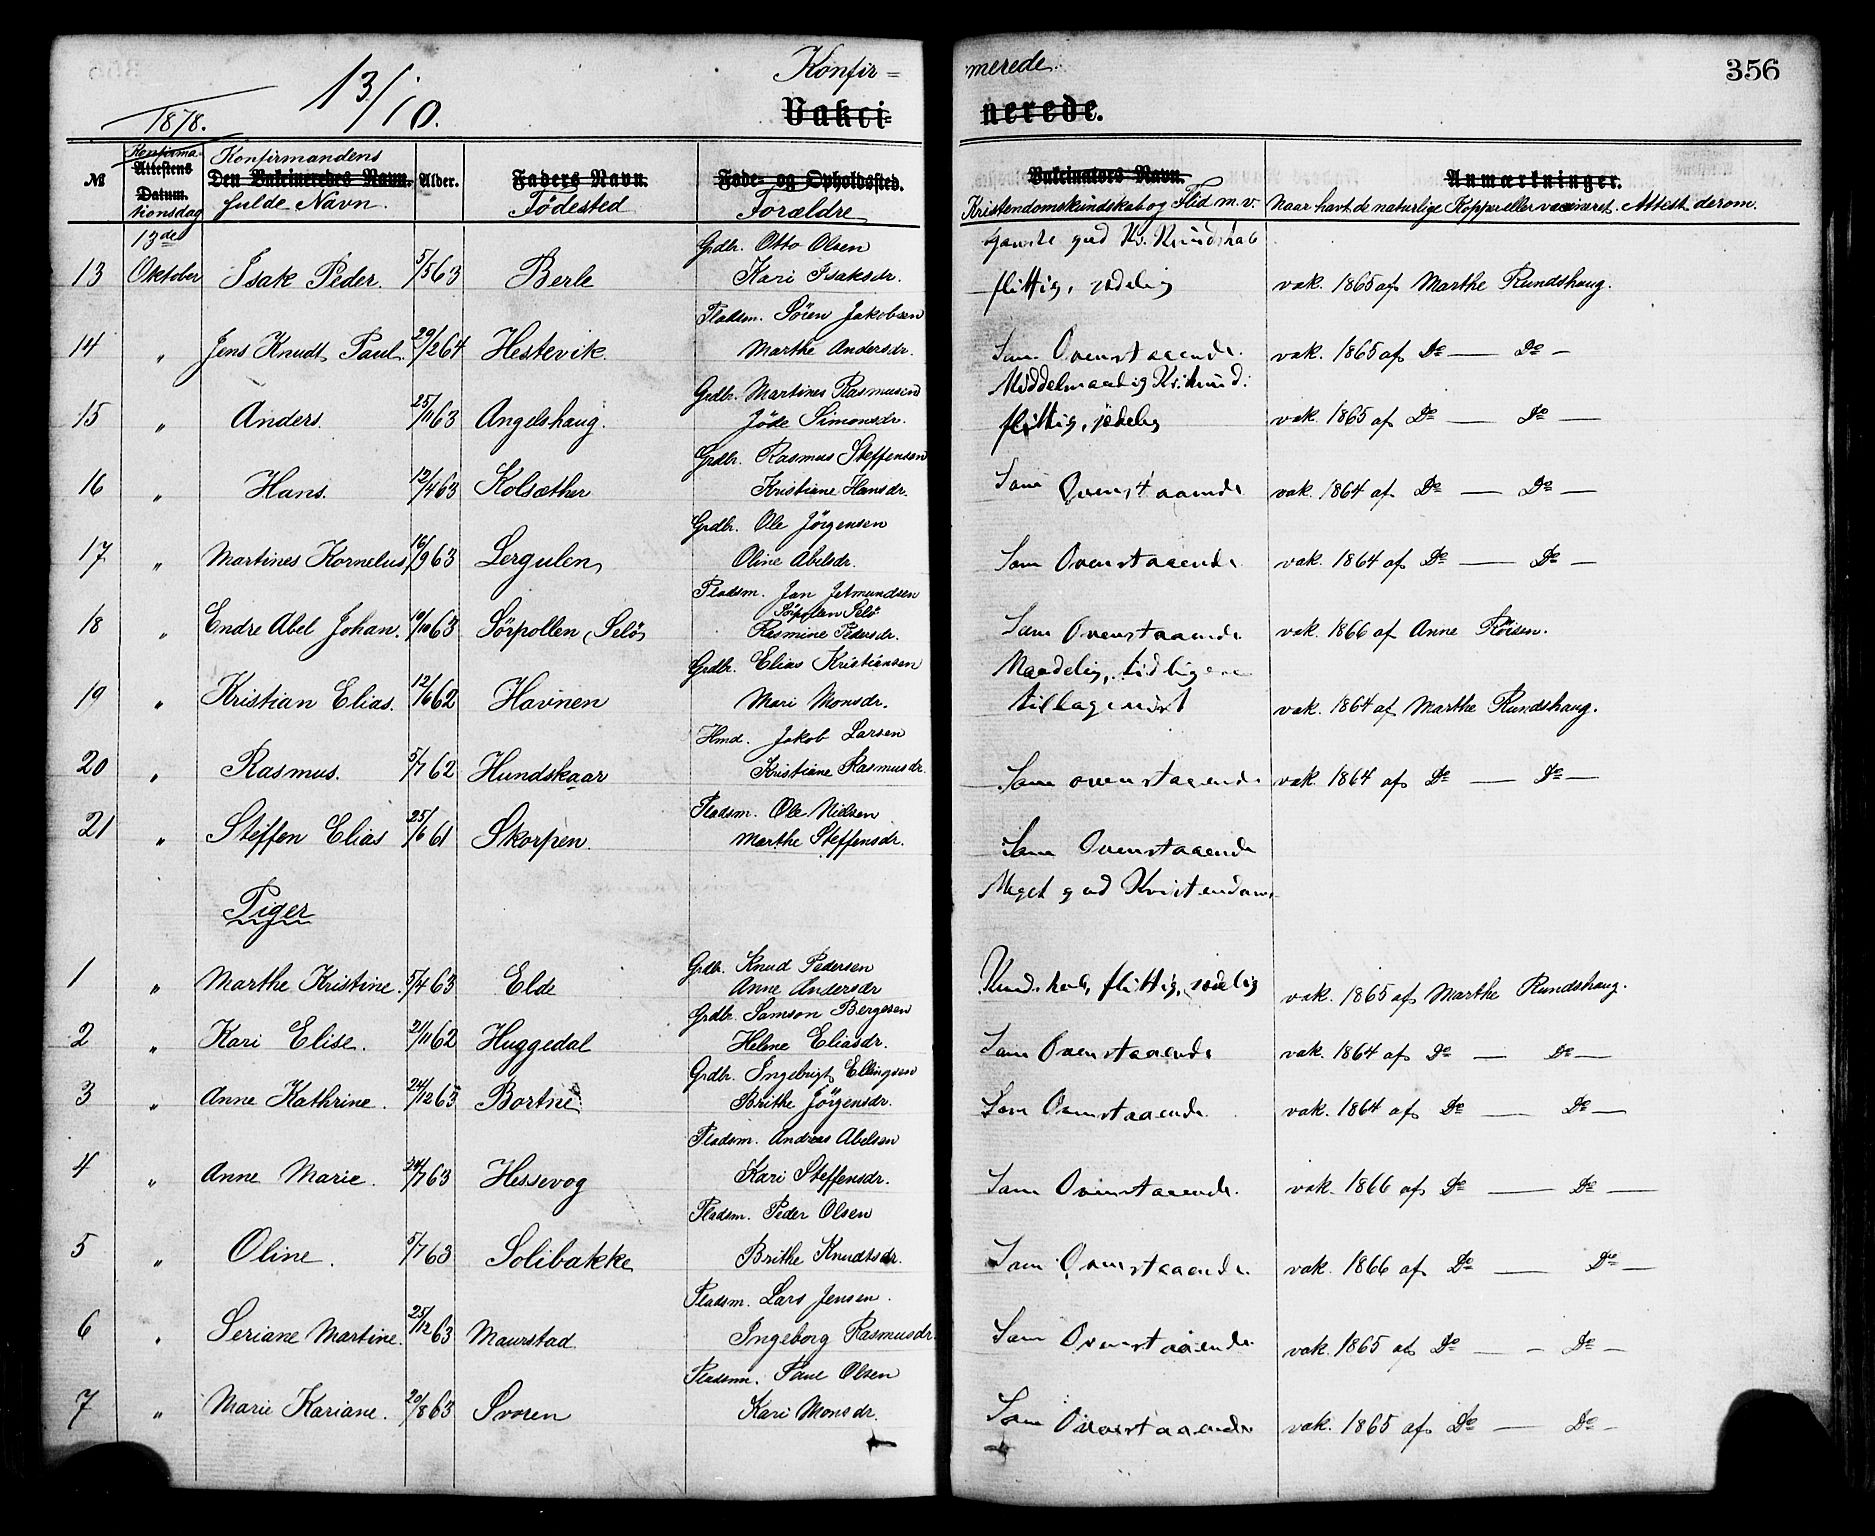 Konfir=
merede.
356
1878.
13/10.
Vakci-
nerede.
Konfirma-
Attestens
Datum.
tionsdag
№
Konfirmandens
Den Vakcineredes Navn.
fulde Navn.
Alder.
Faders Navn.
Fødested
Føde- og Opholdssted.
Forældre
Vakcinators Navn.
Kristendomskundskab og Flid m. v.
Anmærkninger.
Naar havt de naturlige Kopper eller vaccineret. Attest derom.
13de
Grdbr. Otto Olsen
Ganske god Kr. Kundskab
13 Oktober Isak Peder. 5/5 63 Berle Kari Isaksdr. flittig, sædelig vak. 1865 af Marthe Rundshaug.
Pladsm. Sören Jakobsen
14 " Jens Knudt Paul. 29/2 64 Hestevik Marthe Andersdr. Som Ovenstaaende. vak. 1865 af Do — Do —
Grdbr. Martines Rasmusen
Middelmaadig Kr. Kund.
15 " Anders. 25/11 63 Angelshaug. Jöde Simonsdr. flittig, sædelig vak. 1865 af Do — Do —
Grdbr. Rasmus Steffensen
16 " Hans. 12/4 63 Kolsæther Kristiane Hansdr. Som Ovenstaaende vak. 1864 af Do — Do —
Grdbr. Ole Jörgensen
17 " Martines Kornelius 16/9 63 Lergulen Oline Abelsdr. Som Ovenstaaende vak. 1864 af Do — Do —
Pladsm. Jan Jetmundsen
Sörpollen Selö
18 " Endre Abel Johan. 10/10 63 Sörpollen, Selö Rasmine Pedersdr. Som Ovenstaaende vak. 1866 af Anne Röisen.
Grdbr. Elias Kristiansen
Maadelig, tidligere
19 " Kristian Elias. 12/6 62 Havnen Mari Monsdr. tilbagevist vak. 1864 af Marthe Rundshaug.
Hmd. Jakob Larsen
20 " Rasmus. 5/7 62 Hundskaar Kristiane Rasmusdr. Som ovenstaaende vak. 1864 af Do — Do —
Pladsm. Ole Nielsen
21 " Steffen Elias 25/6 61 Skorpen. Marthe Steffensdr. Som Ovenstaaende
Piger
Meget god Kristendoms
Grdbr. Knud Pedersen
1 " Marthe Kristine. 5/4 63 Elde Anne Andersdr Kundskab, flittig, sædelig vak. 1865 af Marthe Rundshaug.
Grdbr. Samson Bergesen
2 " Kari Elise. 21/11 62 Huggedal Helene Eliasdr. Som Ovenstaaende vak. 1864 af Do — Do —
Grdbr. Ingebrigt Ellingsen
3 " Anne Kathrine. 24/12 63 Bortne Brithe Jörgensdr. Som Ovenstaaende vak. 1864 af Do — Do —
Pladsm. Andreas Abelsen
4 " Anne Marie. 24/7 63 Hessevog Kari Steffensdr. Som Ovenstaaende. vak. 1866 af Do — Do —
Pladsm. Peder Olsen
5 " Oline. 5/7 63 Solibakke Brithe Knudtsdr. Som Ovenstaaende vak. 1866 af Do — Do —
Pladsm. Lars Jensen.
6 " Seriane Martine. 25/12 63 Maurstad Ingeborg Rasmusdr. Som Ovenstaaende vak. 1865 af Do — Do —
Pladsm. Paul Olsen
7 " Marie Kariane. 20/8 63 Svoren Kari Monsdr. Som Ovenstaaende vak. 1865 af Do — Do —